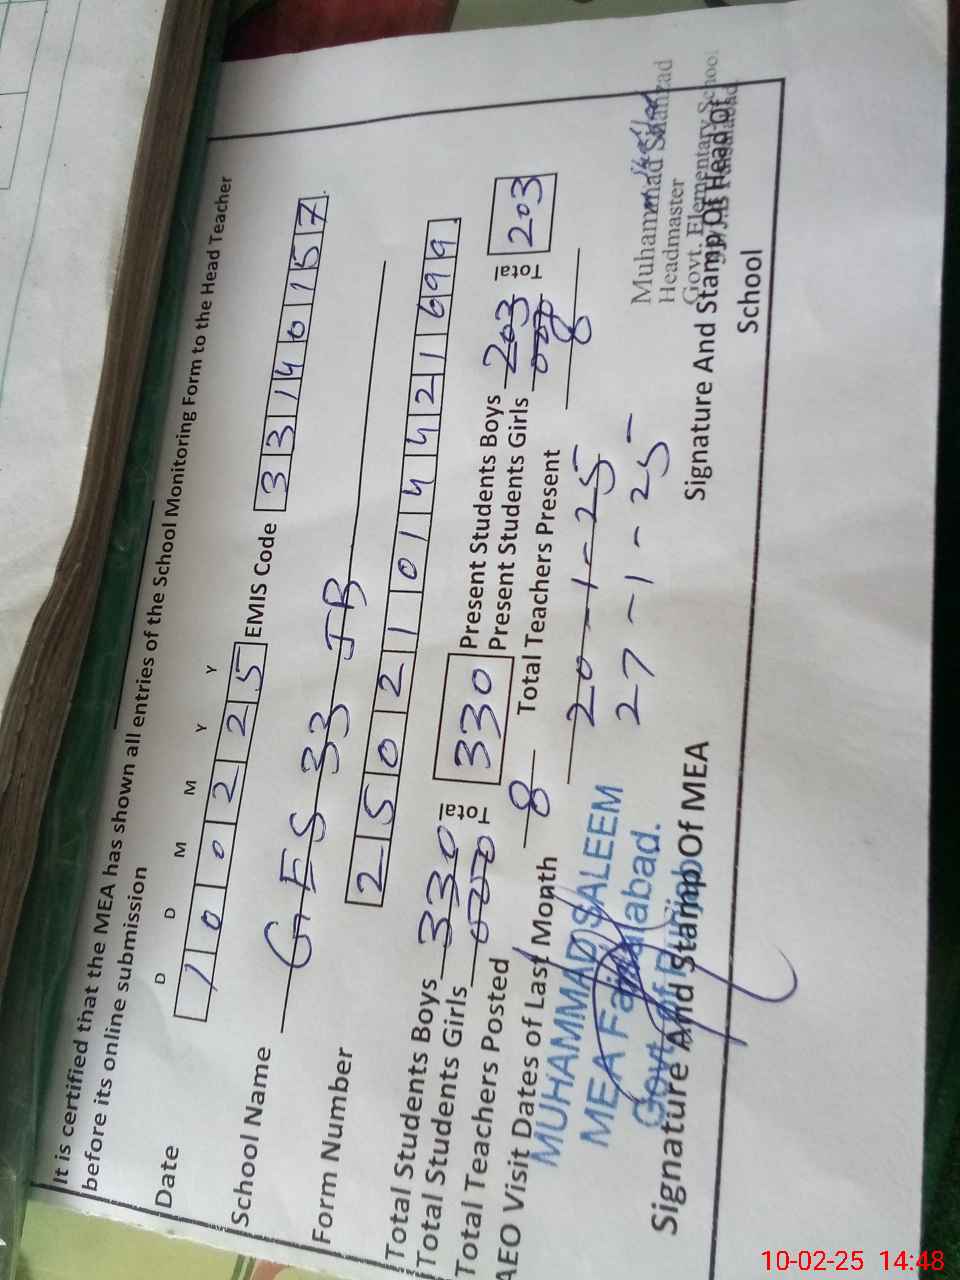 It is certified that the MEA has shown all entries of the School Monitoring Form to the Head Teacher
before its online submission
D D M M Y Y
Date 100225 EMIS Code 33140157
School Name GES 33 JB
Form Number 25021014421699
Total Students Boys 330 Total 330 Present Students Boys 203 Total 203
Total Students Girls 000 Present Students Girls 000
Total Teachers Posted 8 Total Teachers Present 8
AEO Visit Dates of Last Month 20-1-25
27-1-25
MUHAMMAD SALEEM
MEA Faisalabad.
Govt. of Punjab
Signature And Stamp Of MEA
Muhammad Shahzad
Headmaster
Govt. Elementary School
Signature And Stamp Of Head Of
School
10-02-25 14:48